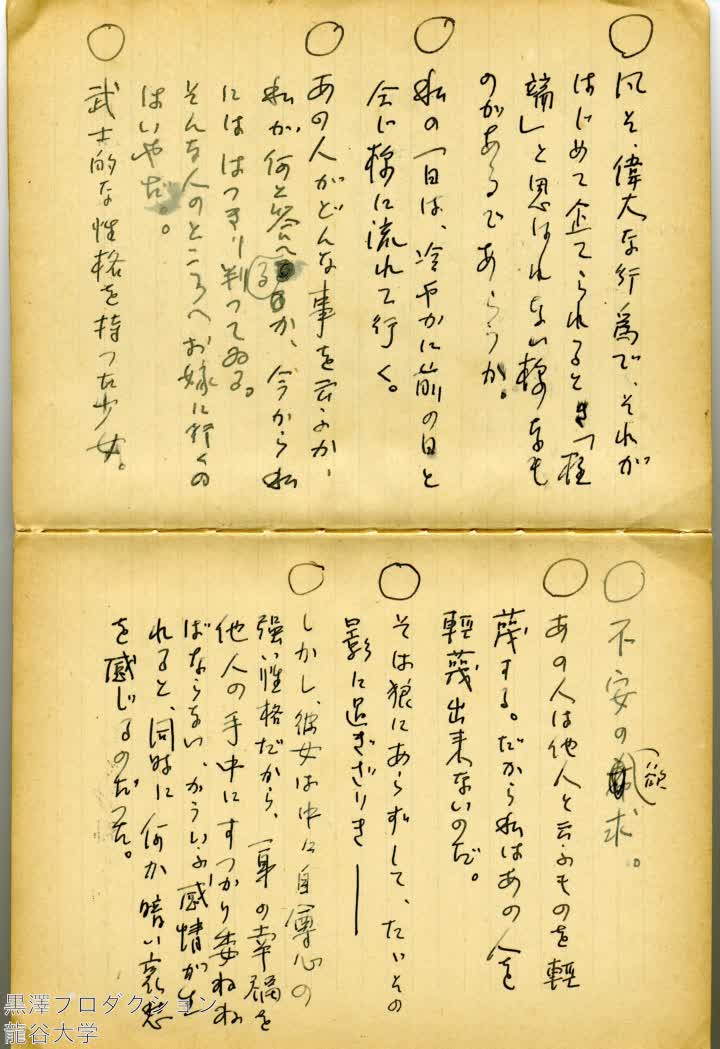 ○ 凡そ、偉大な行為で、それが
はじめて企てられるとき「極
端」と思はれない様なも
のがあるであらうか。
○ 私の一日は、冷やかに前の日と
全じ様に流れて行く。
○ あの人がどんな事を云ふか、
私が何と答へるか、今から私
にははつきり判つてゐる。
そんな人のところへお嫁に行くの
はいやだ。
○ 武士的な性格を持つた少女。
○ 不安の欲求。
○ あの人は他人と云ふものを軽
蔑する。だから私はあの人を
輕蔑出来ないのだ。
○ そは狼にあらずして、たゞその
影に過ぎざりき──
○ しかし、彼女は中々自尊心の
強い性格だから、一身の幸福を
他人の手中にすつかり委ねね
ばならない、かういふ感情が生
れると、同時に何か暗い哀愁
を感じるのだつた。
黒澤プロダクション
龍谷大学